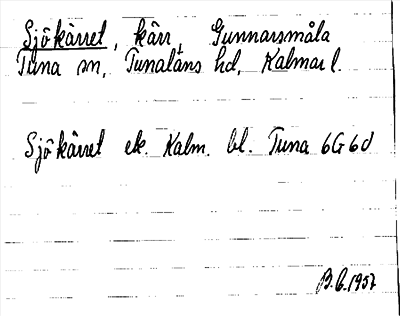 Sjökärret, kärr Gunnarsmåla
Tuna sn, Tunaläns hd, Kalmar l.
Sjökärret ek. Kalm. bl. Tuna 6G6d
1957